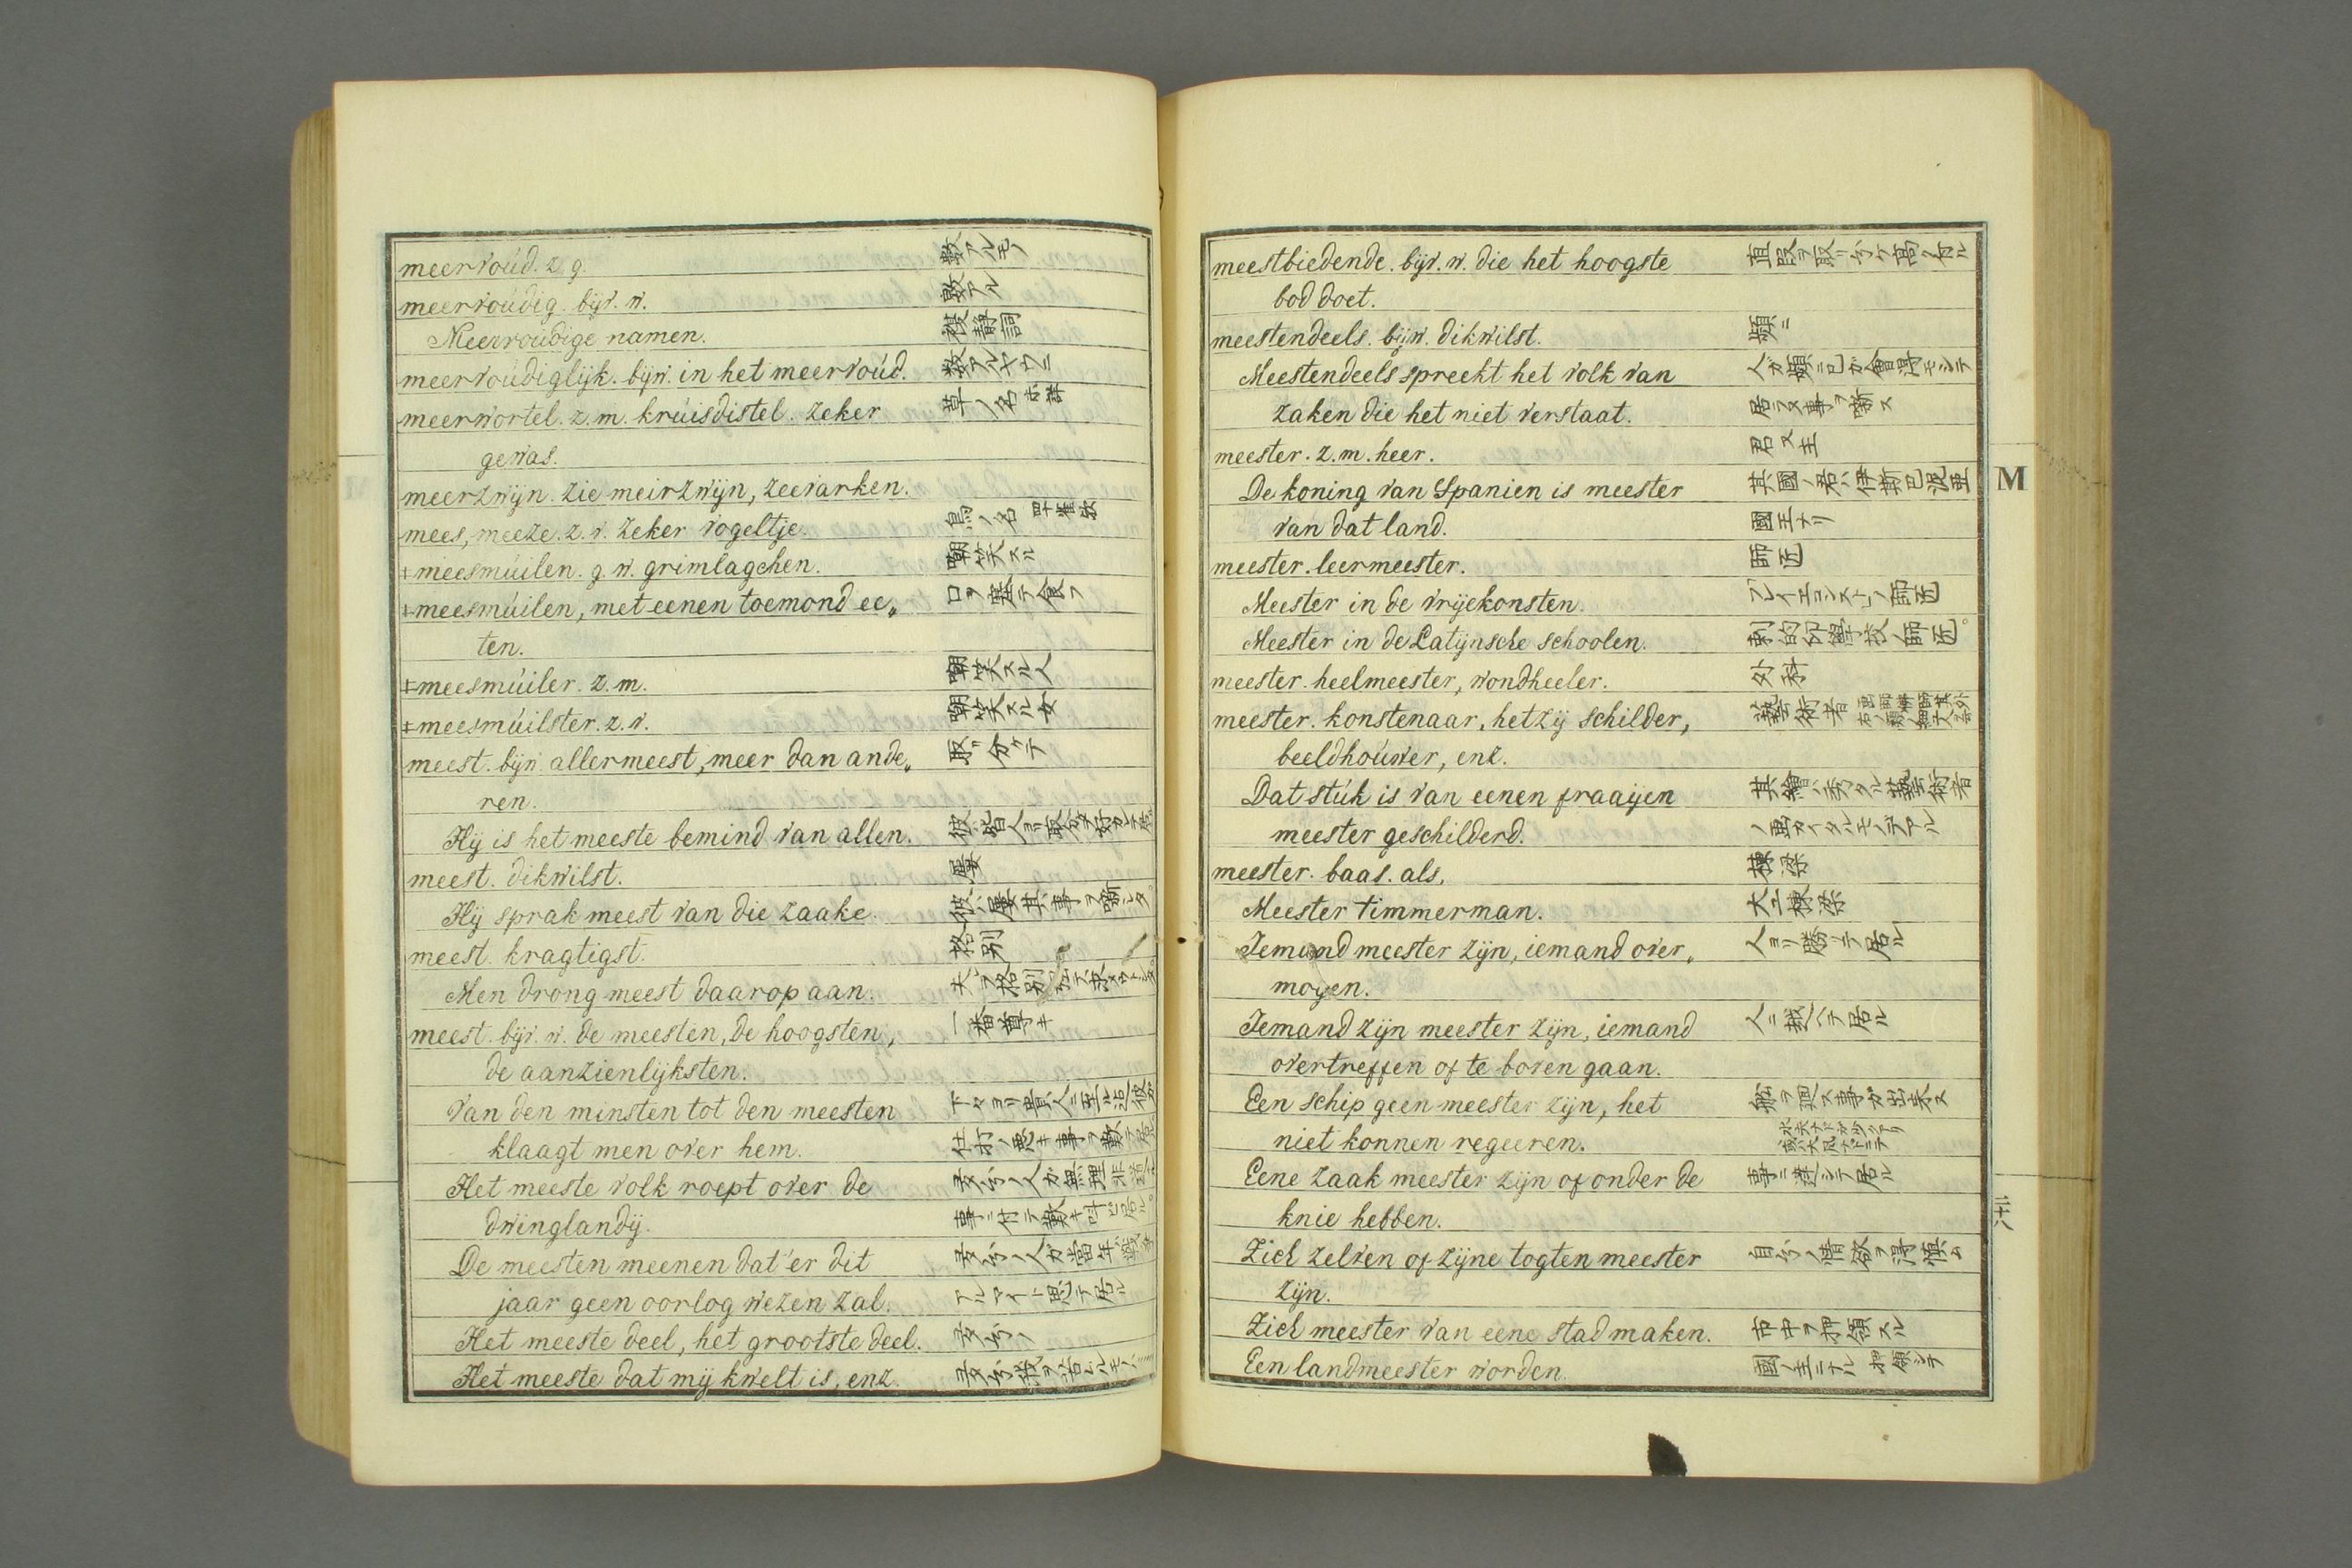 meervoúd. z. g. 数アルモノ
meervoúdig. bijv. w. 数アル
Meervoudige namen. 複静詞
meervoúdiglijk. bijw. in het meervoúd. 数アルヤウニ
meerwortel. z. m. krúisdistel. zeker 草ノ名
gewas.
meerzwijn. zie meirzwijn, zeevarken.
mees, meeze. z. v. zeker vogeltje. 鳥ノ名
‡meesmúilen. g. w. grimlagchen. 嘲笑スル
‡meesmúilen, met eenen toemond ee„ 口ヲ塞テ食フ
ten.
‡meesmúiler. z. m. 嘲笑スル人
‡meesmúilster. z. v. 嘲笑スル女
meest. bijw. allermeest, meer dan ande„ 取分テ
ren.
Hij is het meeste bemind van allen.
meest. dikwilst. 屢
Hij sprak meest van die zaake. 彼ハ屢其事ヲ噺シタ
meest. kragtigst. 格別
Men drong meest daarop aan.
meest. bijv. w. de meesten, de hoogsten, 一番尊キ
de aanzienlijksten.
Van den minsten tot den meesten
klaagt men over hem.
Het meeste volk roept over de
dwinglandij.
De meesten meenen dat 'er dit
jaar geen oorlog wezen zal. アルマイト思テ居ル
Het meeste deel, het grootste deel. 多分ノ
Het meeste dat mij kwelt is, enz.
meestbiedende. bijv. w. die het hoogste
bod doet.
meestendeels. bijw. dikwilst. 頻ニ
Meestendeels spreekt het volk van
zaken die het niet verstaat. 居ラヌ事ヲ噺ス
meester. z. m. heer. 君又主
De koning van Spanien is meester 其國ノ君ハ伊斯巴泥亜
van dat land. 國王ナリ
meester. leermeester. 師匠
Meester in de vrijekonsten.
Meester in de Latijnsche schoolen.
meester. heelmeester, wondheeler. 外科
meester. konstenaar, hetzij schilder, 藝術者
beeldhoúwer, enz.
Dat stúk is van eenen fraaijen 其繪ハ秀タル藝術者
meester geschilderd. ノ画カイタルモノデアル
meester. baas. als, 棟梁
Meester timmerman. 大工棟梁
Iemand meester zijn, iemand over„ 人ヨリ勝レテ居ル
mogen.
Iemand zijn meester zijn, iemand 人ニ越ヘテ居ル
overtreffen of te boven gaan.
Een schip geen meester zijn, het 舩ヲ廻ス事が出来ヌ
niet konnen regeeren.
Eene zaak meester zijn of onder de 事ニ達シテ居ル
knie hebben.
Zich zelven of zijne togten meester
zijn.
Zich meester van eene stad maken. 市中ヲ押領スル
Een landmeester worden. 國ノ主ニナル 押領シテ
M